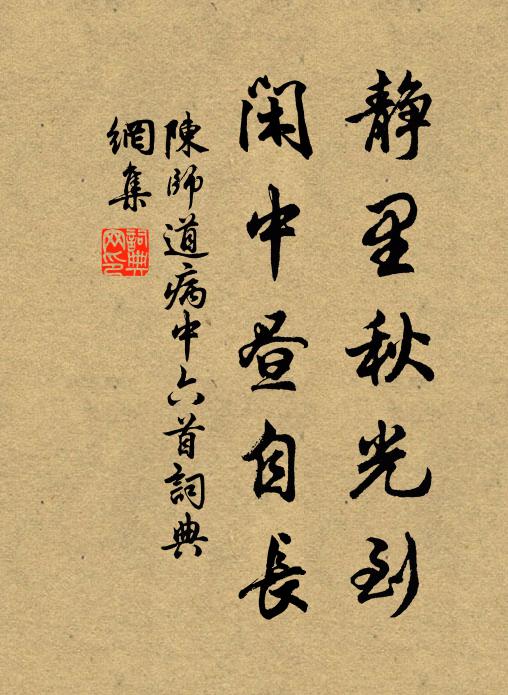 静里秋光到
閑中昼自長
陳師道病中六首詞典
網集
詞典網印